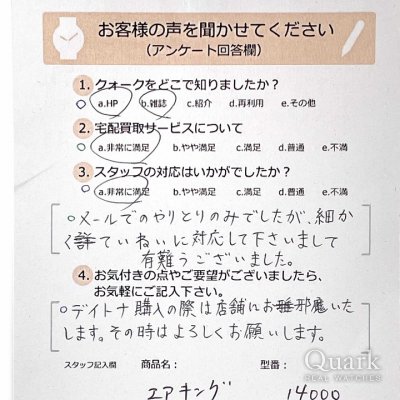 お客様の声を聞かせてください
（アンケート回答欄）
1. クォークをどこで知りましたか？
a.HP b.雑誌 c.紹介 d.再利用 e.その他
2. 宅配買取サービスについて
a.非常に満足 b.やや満足 c.満足 d.普通 e.不満
3. スタッフの対応はいかがでしたか？
a.非常に満足 b.やや満足 c.満足 d.普通 e.不満
メールでのやりとりのみでしたが、細か
くていねいに対応して下さいまして
有難うございました。
4. お気付きの点やご要望がございましたら、
お気軽にご記入下さい。
デイトナ購入の際は店舗にお邪魔いた
します。その時はよろしくお願いします。
スタッフ記入欄 商品名： 型番：
エアキング 14000
Quark
REAL WATCHES